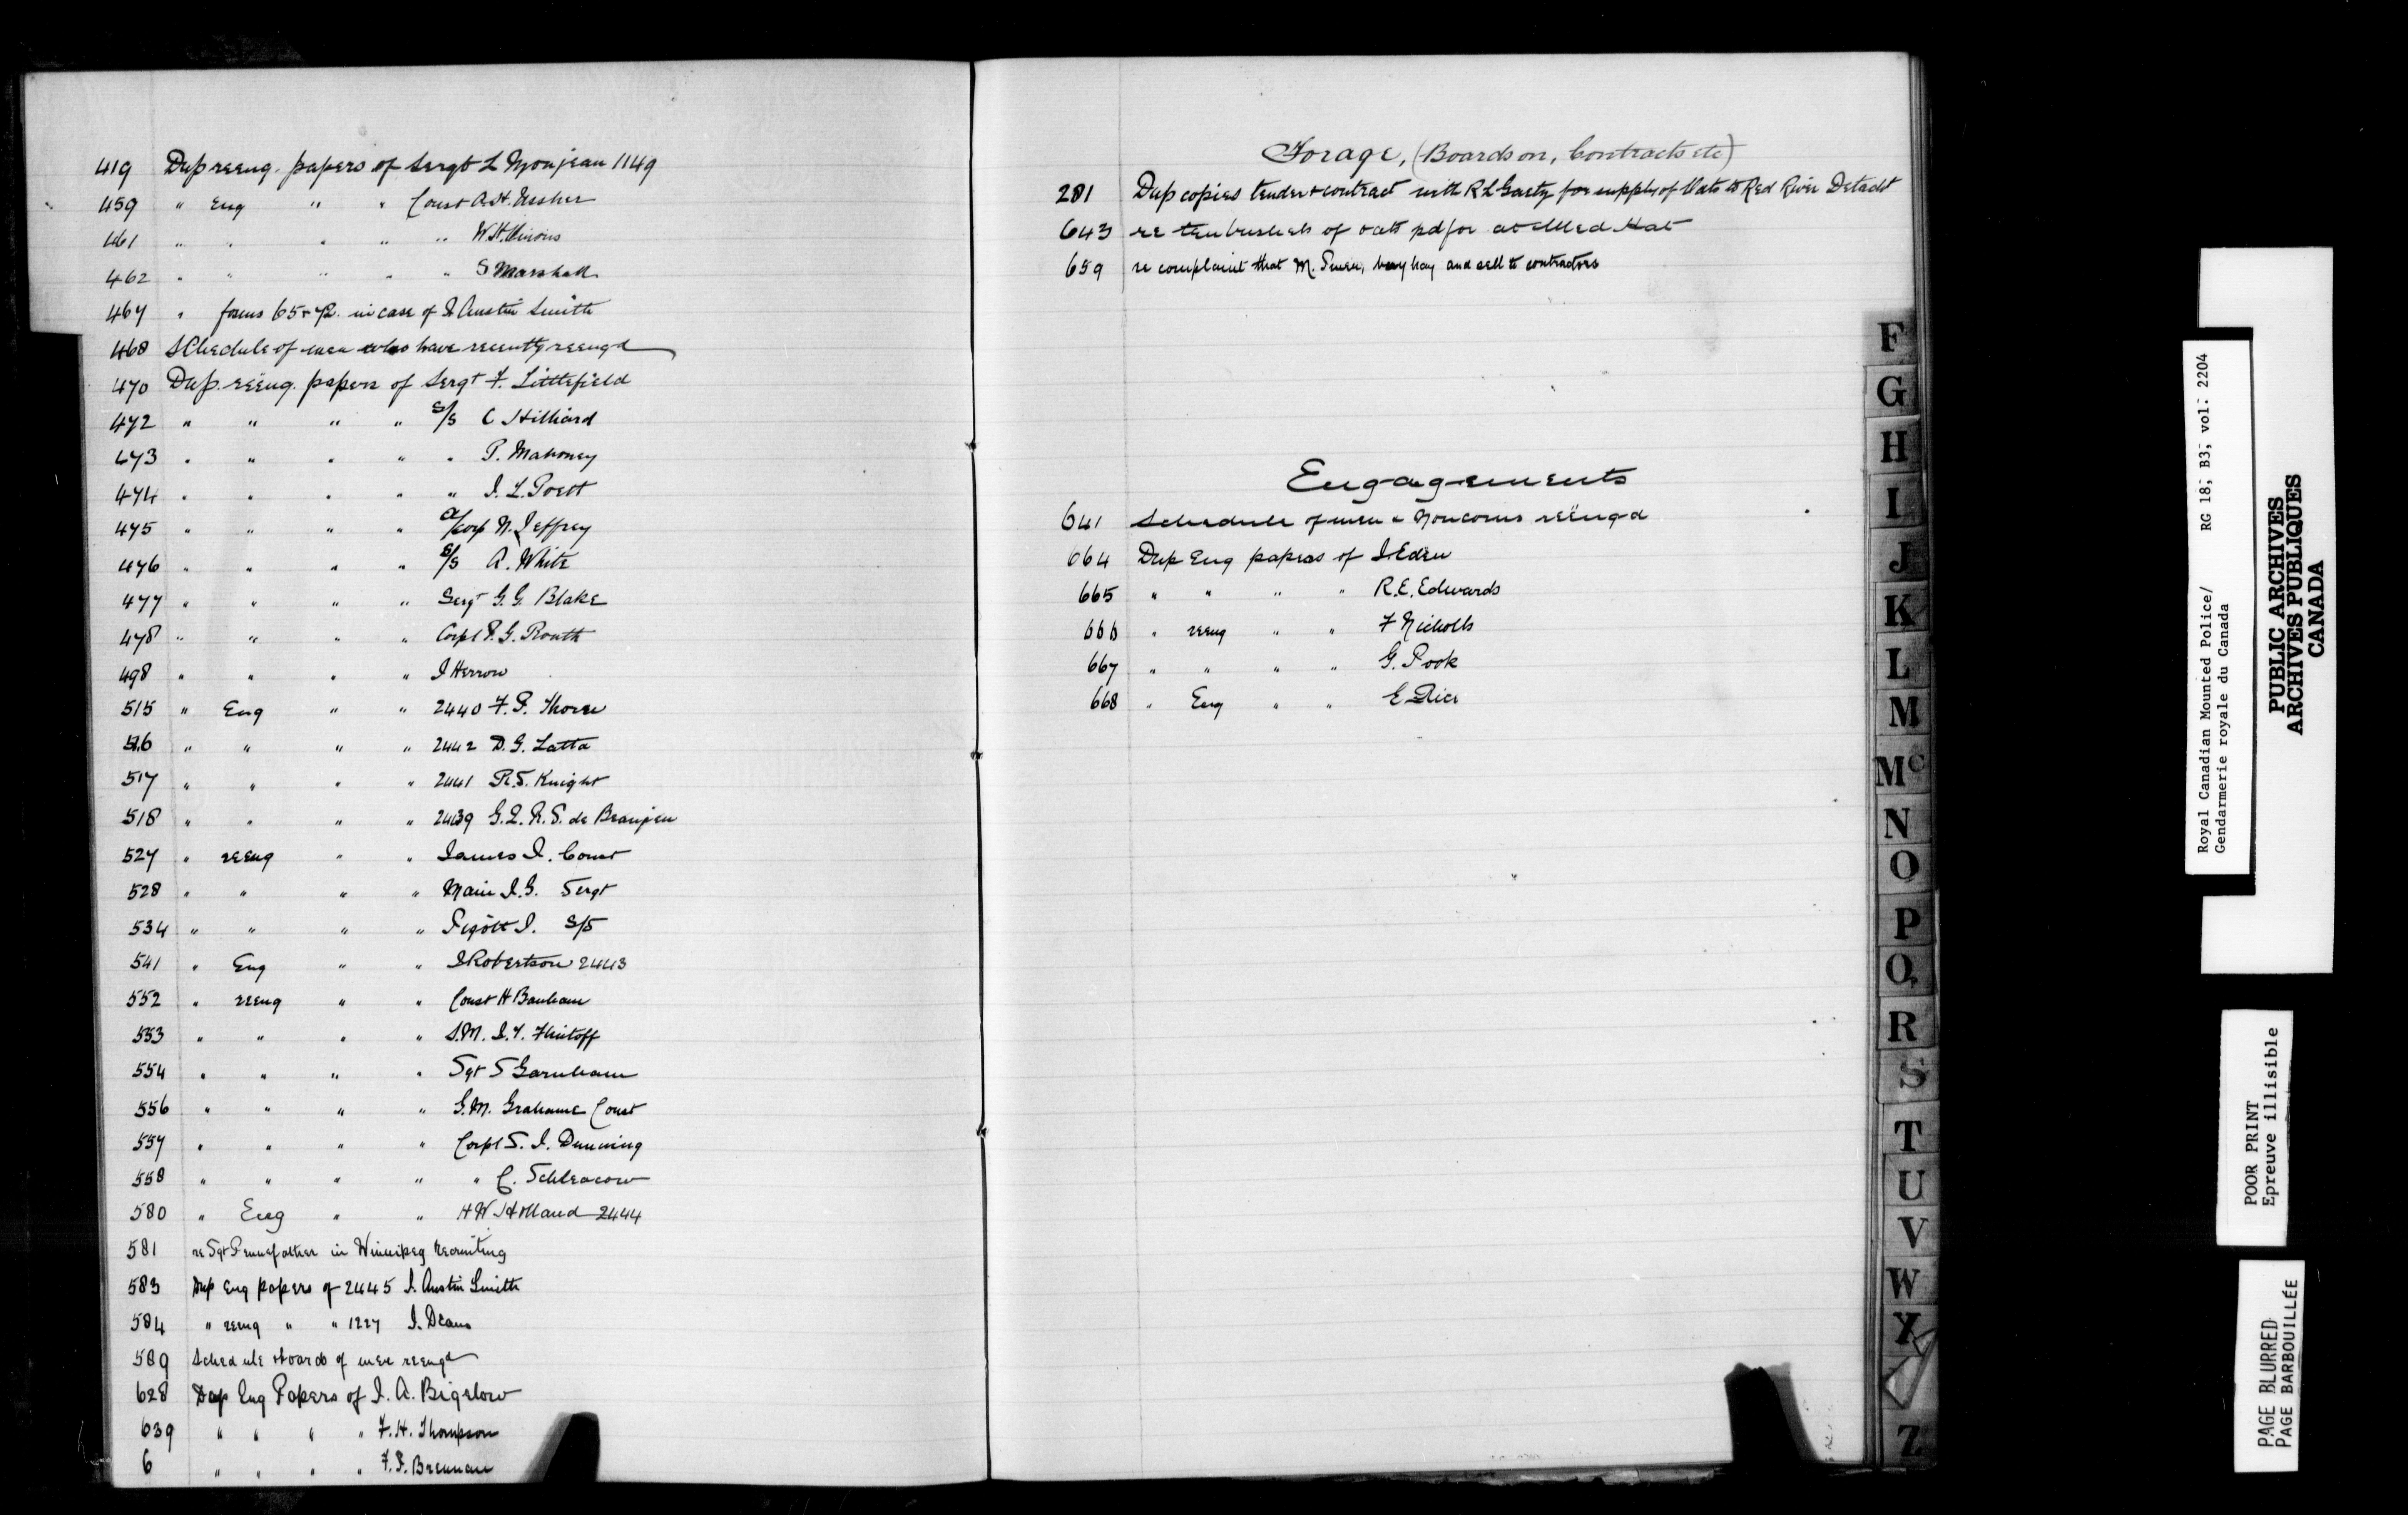 419 Dup reeng. papers of Sergt L Monjeau 1149
459 " Eng " " Const A.H. Ussher
461 " " " " " W.H.
462 " " " " " S Marshall
467 " forms 65 & 72 in case of J Austin Smith
468 Schedule of men who have recently reengd
470 Dup. reëng. papers of Sergt F. Littlefield
472 " " " " S/S C Hilliard
473 " " " " " P. Mahoney
474 " " " " " J. L. Poett
475 " " " " a/Corp N. Jeffrey
476 " " " " S/S A. White
477 " " " " Sergt G. G. Blake
478 " " " " Corpl P. G. Routh
498 " " " " J Herron
515 " Eng " " 2440 F. P. Thorne
516 " " " " 2442 D. G. Latta
517 " " " " 2441 R. S. Knight
518 " " " " 2439 G. Q. R. S. de Beaujeu
527 " reeng " " James J. Const
528 " " " " Main J. G. Sergt
534 " " " " Pigott J. S/S
541 " Eng " " J Robertson 2443
552 " reeng " " Const H Banham
553 " " " " S.M. J. Y. Flintoff
554 " " " " Sgt S Garnham
556 " " " " G. M. Grahame Const
557 " " " " Corpl S. J. Dunning
558 " " " " " C. Schleacow
580 " Eng " " H W Holland 2444
581 re Sgt Pennefather in Winnipeg Recruiting
583 Dup Eng papers of 2445 J. Austin Smith
584 " reeng " " 1227 J. Deans
589 Schedule + boards of men reengd
628 Dup Eng Papers of J. A. Bigelow
639 " " " " F. H. Thompson
6 " " " " F. P. Brennan
Forage, (Boards on, Contracts etc)
281 Dup copies tender & contract with R L Gaetz for supply of Oats to Red River Detacht
643 re ten bushels of oats pd for at Med Hat
659 re complaint that M. buy hay and sell to contractors
Engagements
641 Schedule of men & Noncoms reëngd
664 Dup Eng papers of J. Eden
665 " " " " R. E. Edwards
666 " reeng " " F Nicholls
667 " " " " G. Pook
668 " Eng " " E Rice
F
G
H
I
J
K
L
M
Mc
N
O
P
Q
R
S
T
U
V
W
X
Z
Royal Canadian Mounted Police/ RG 18, B3, vol. 2204
Gendarmerie royale du Canada
PUBLIC ARCHIVES
ARCHIVES PUBLIQUES
CANADA
POOR PRINT
Epreuve illisible
PAGE BLURRED
PAGE BARBOUILLÉE